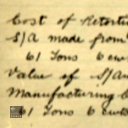 Cost of Retorti
S/A made from
61 Tons 6 cw
Value of S/A
Manufacturing C
61 Tons 6 cwts